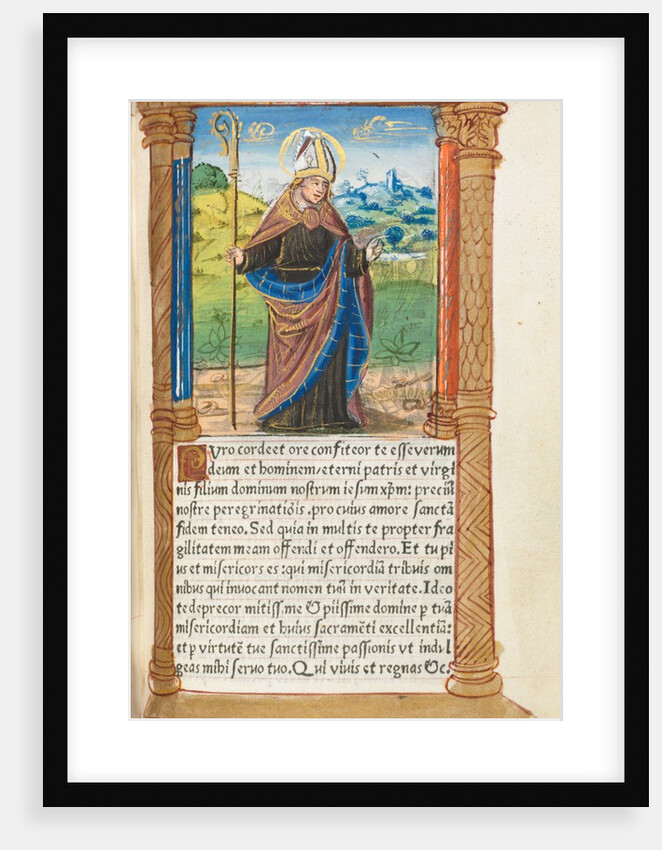 Puro corde et ore confiteor te esse verum
deum et hominem/eterni patris et virgi
nis filium dominum nostrum iesum xp̄m: preciū
nostre peregrinatiōis. pro cuius amore sanctā
fidem teneo. Sed quia in multis te propter fra
gilitatem meam offendi et offendero. Et tu pi
us et misericors es: qui misericordiā tribuis om
nibus qui invocant nomen tuū in veritate. Ideo
te deprecor mitissime & piissime domine p̱ tuā
misericordiam et huius sacramēti excellentiā:
et p̱ virtutē tue sanctissime passionis vt indul
geas mihi servo tuo. Qui vivis et regnas &c.